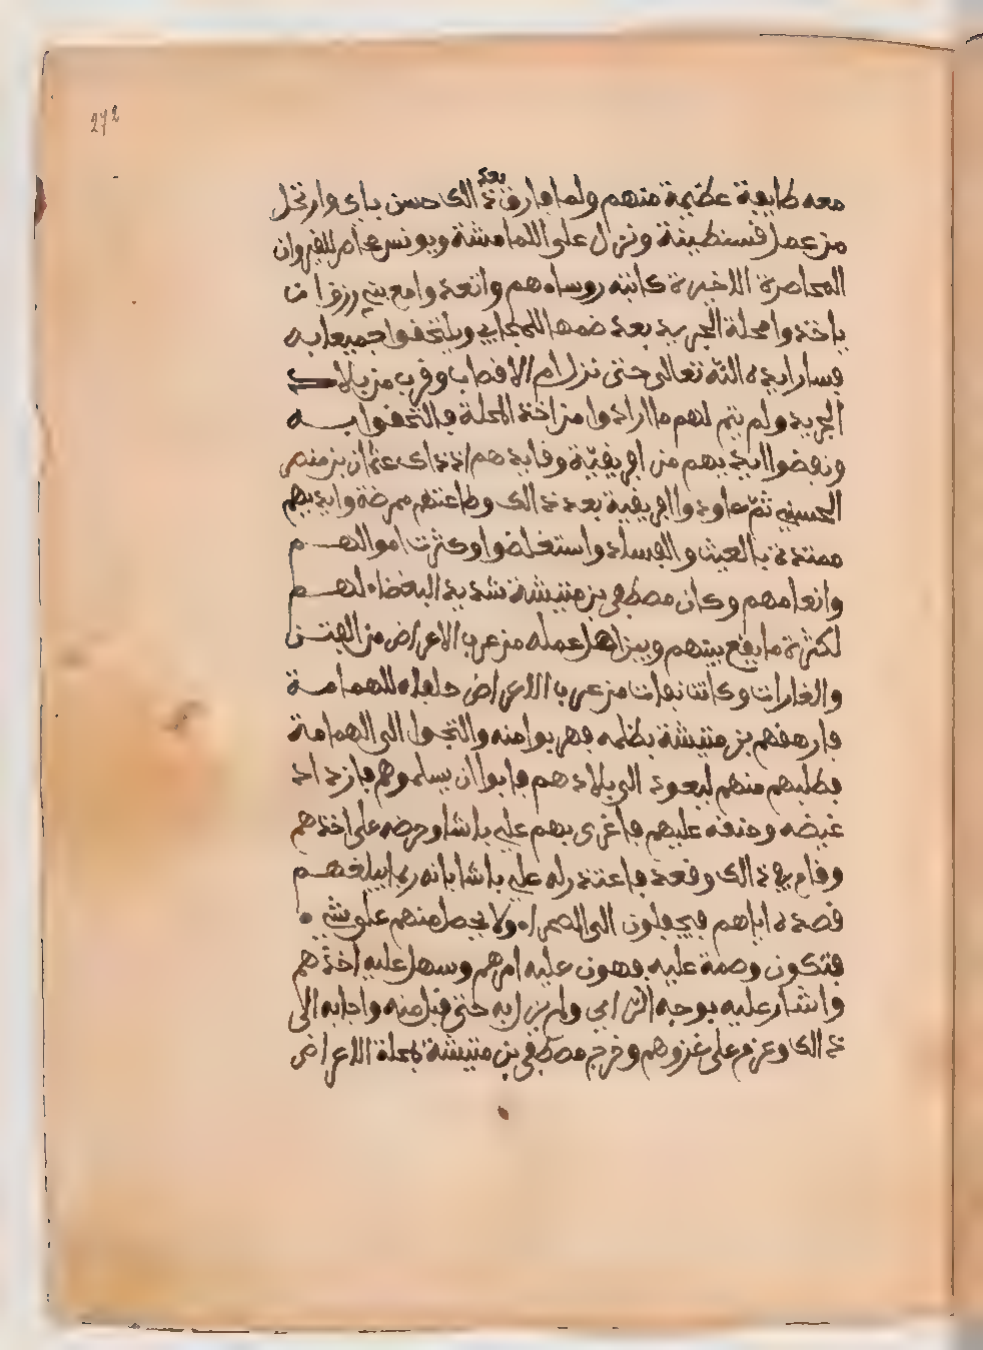 272
معه طايفة عظيمة منهم ولما فارق بعد ذالك حسن باي وارتحل
من عمل قسنطينة ونزل على اللمامشة ويونس محاصر للقيروان
المحاصرة الاخيرة كاتبه روساءهم واتعدوا مع بني رزق ان
ياخذوا محلة الجريد بعد ضمها اللمجابي ويلتحقوا جميعا به
فسار ايده الله تعالى حتى نزل ام الاقصاب وقرب من بلاد
الجريد ولم يتم لهم ما ارادوا من اخذ المحلة فالتحقوا به
ونفضوا ايديهم من افريقيّة وقايدهم اذذاك عثمان بن منصر
الحسيني ثمّ عاودوا افريقية بعد ذالك وطاعتهم ممرضة وايديهم
ممتدة بالعيث والفساد واستغلضوا وكثرت اموالهم
وانعامهم وكان مصطفى بن متيشة شديد البغضاء لهم
لكثرة ما يقع بينهم وبين اهل عمله من عرب الاعراض من الفتن
والغارات وكانت نفات من عرب الاعراض حلفاء للهمامة
فارهقهم بن متيشة بظلمه فهربوا منه والتجوا الى الهمامة
فطلبهم منهم ليعود الى بلادهم فابوا ان يسلموهم فازداد
غيضه وحنقه عليهم فاغرى بهم علي باشا وحرضه على اخذهم
وقام في ذالك وقعد فاعتذر له علي باشا بانه ربما يبلغهم
قصده اياهم فيجفلون الى الصحراء ولا يحصل منهم على شيء
فتكون وصمة عليه فهون عليه امرهم وسهل عليه اخذهم
واشار عليه بوجه الراي ولم يزل به حتى قبل منه واجابه الى
ذالك وعزم على غزوهم وخرج مصطفى بن متيشة بمحلة الاعراض